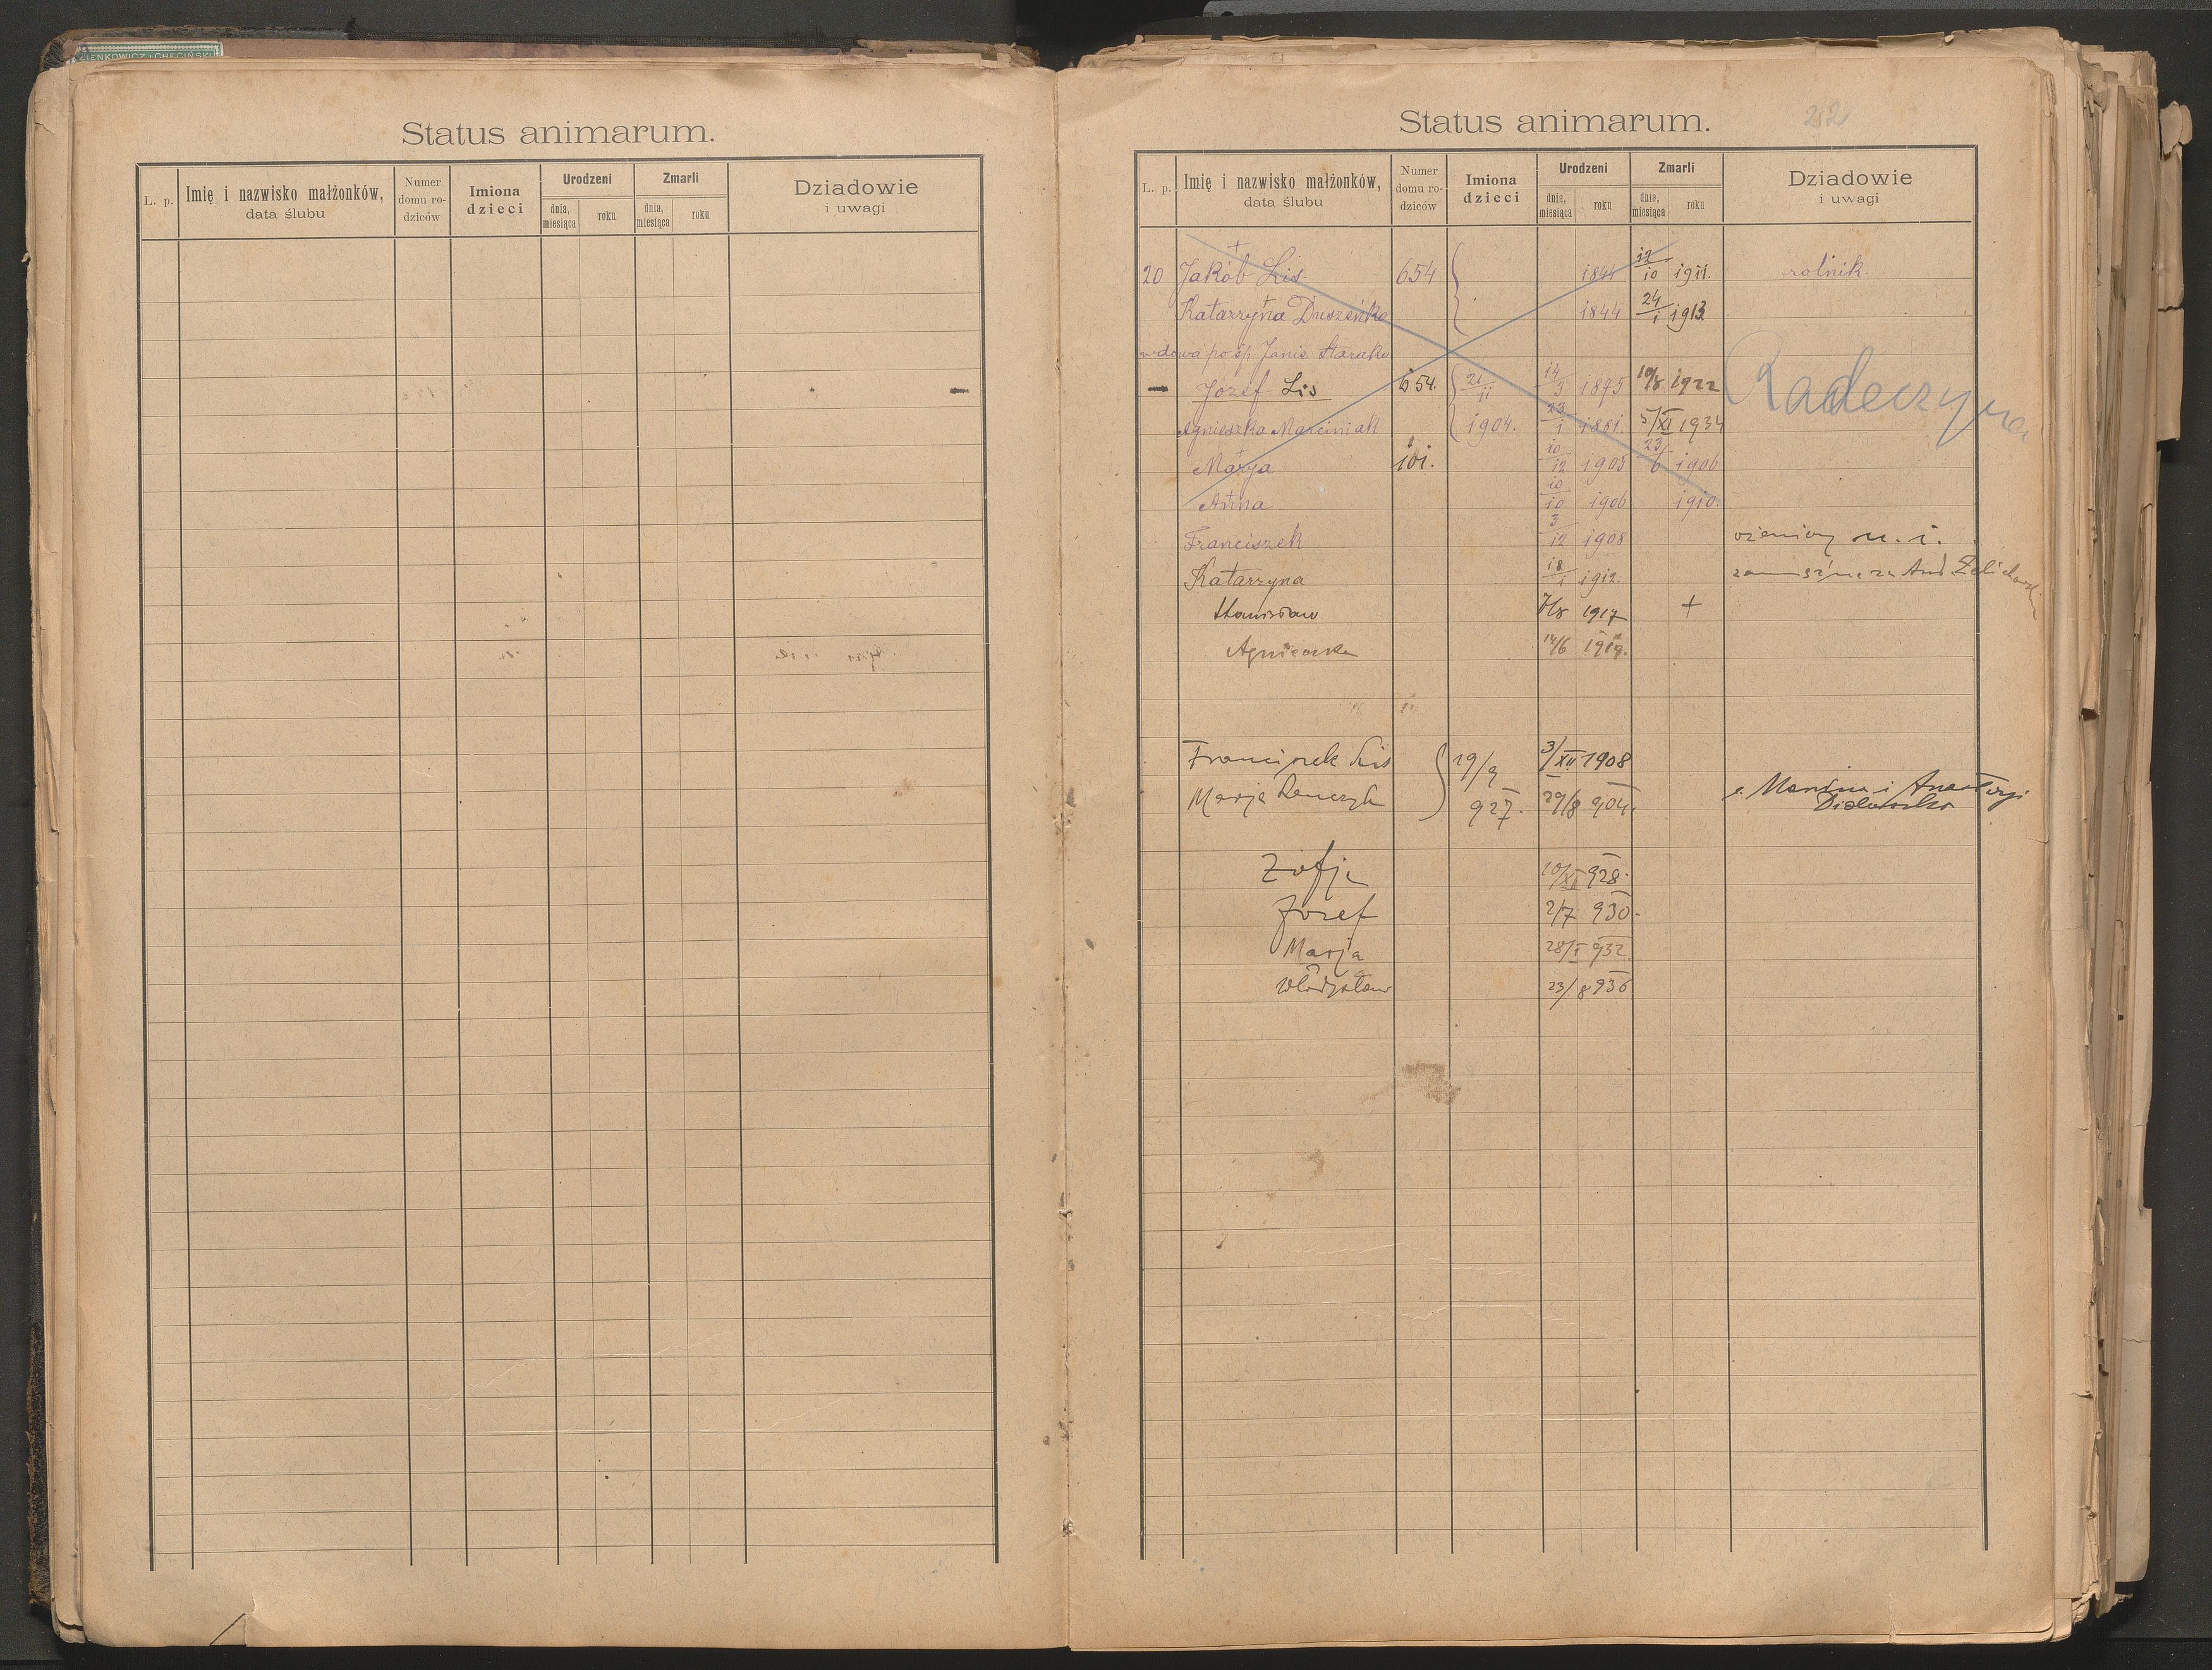 IENKOWICZ i CHĘCIŃSKI
Status animarum.
L. p.
Imię i nazwisko małżonków,
data ślubu
Numer
domu ro-
dziców
Imiona
dzieci
Urodzeni
dnia,
miesiąca
roku
Zmarli
dnia,
miesiąca
roku
Dziadowie
i uwagi
Status animarum.
22
L. p.
Imię i nazwisko małżonków,
data ślubu
Numer
domu ro-
dziców
Imiona
dzieci
Urodzeni
dnia,
miesiąca
roku
Zmarli
dnia,
miesiąca
roku
Dziadowie
i uwagi
20 Jakób Lis 654 1844 12/10 1911. rolnik.
Katarzyna 1844 24/1 1913
wdowa po śp. Janie
Józef Lis 654. 21/11 14/3 1875 10/8 1922
Radeczyna
Agnieszka Marciniak 1904. 23/1 1881. 5/XI 1934
Marya 101. 10/12 1903 23/6 1906
Anna 10/10 1906 1910.
Franciszek 3/12 1908 ożeniony n. i.
Katarzyna 18/1 1912.
Stanisław 7/8 1917 +
Agnieszka 14/6 1919.
Franciszek Lis 19/9 3/XII 1908
Marja 927. 29/8 904.
Zofja 10/XII 928.
Józef 2/7 930.
Marja 28/I 932
Władysław 23/8 936